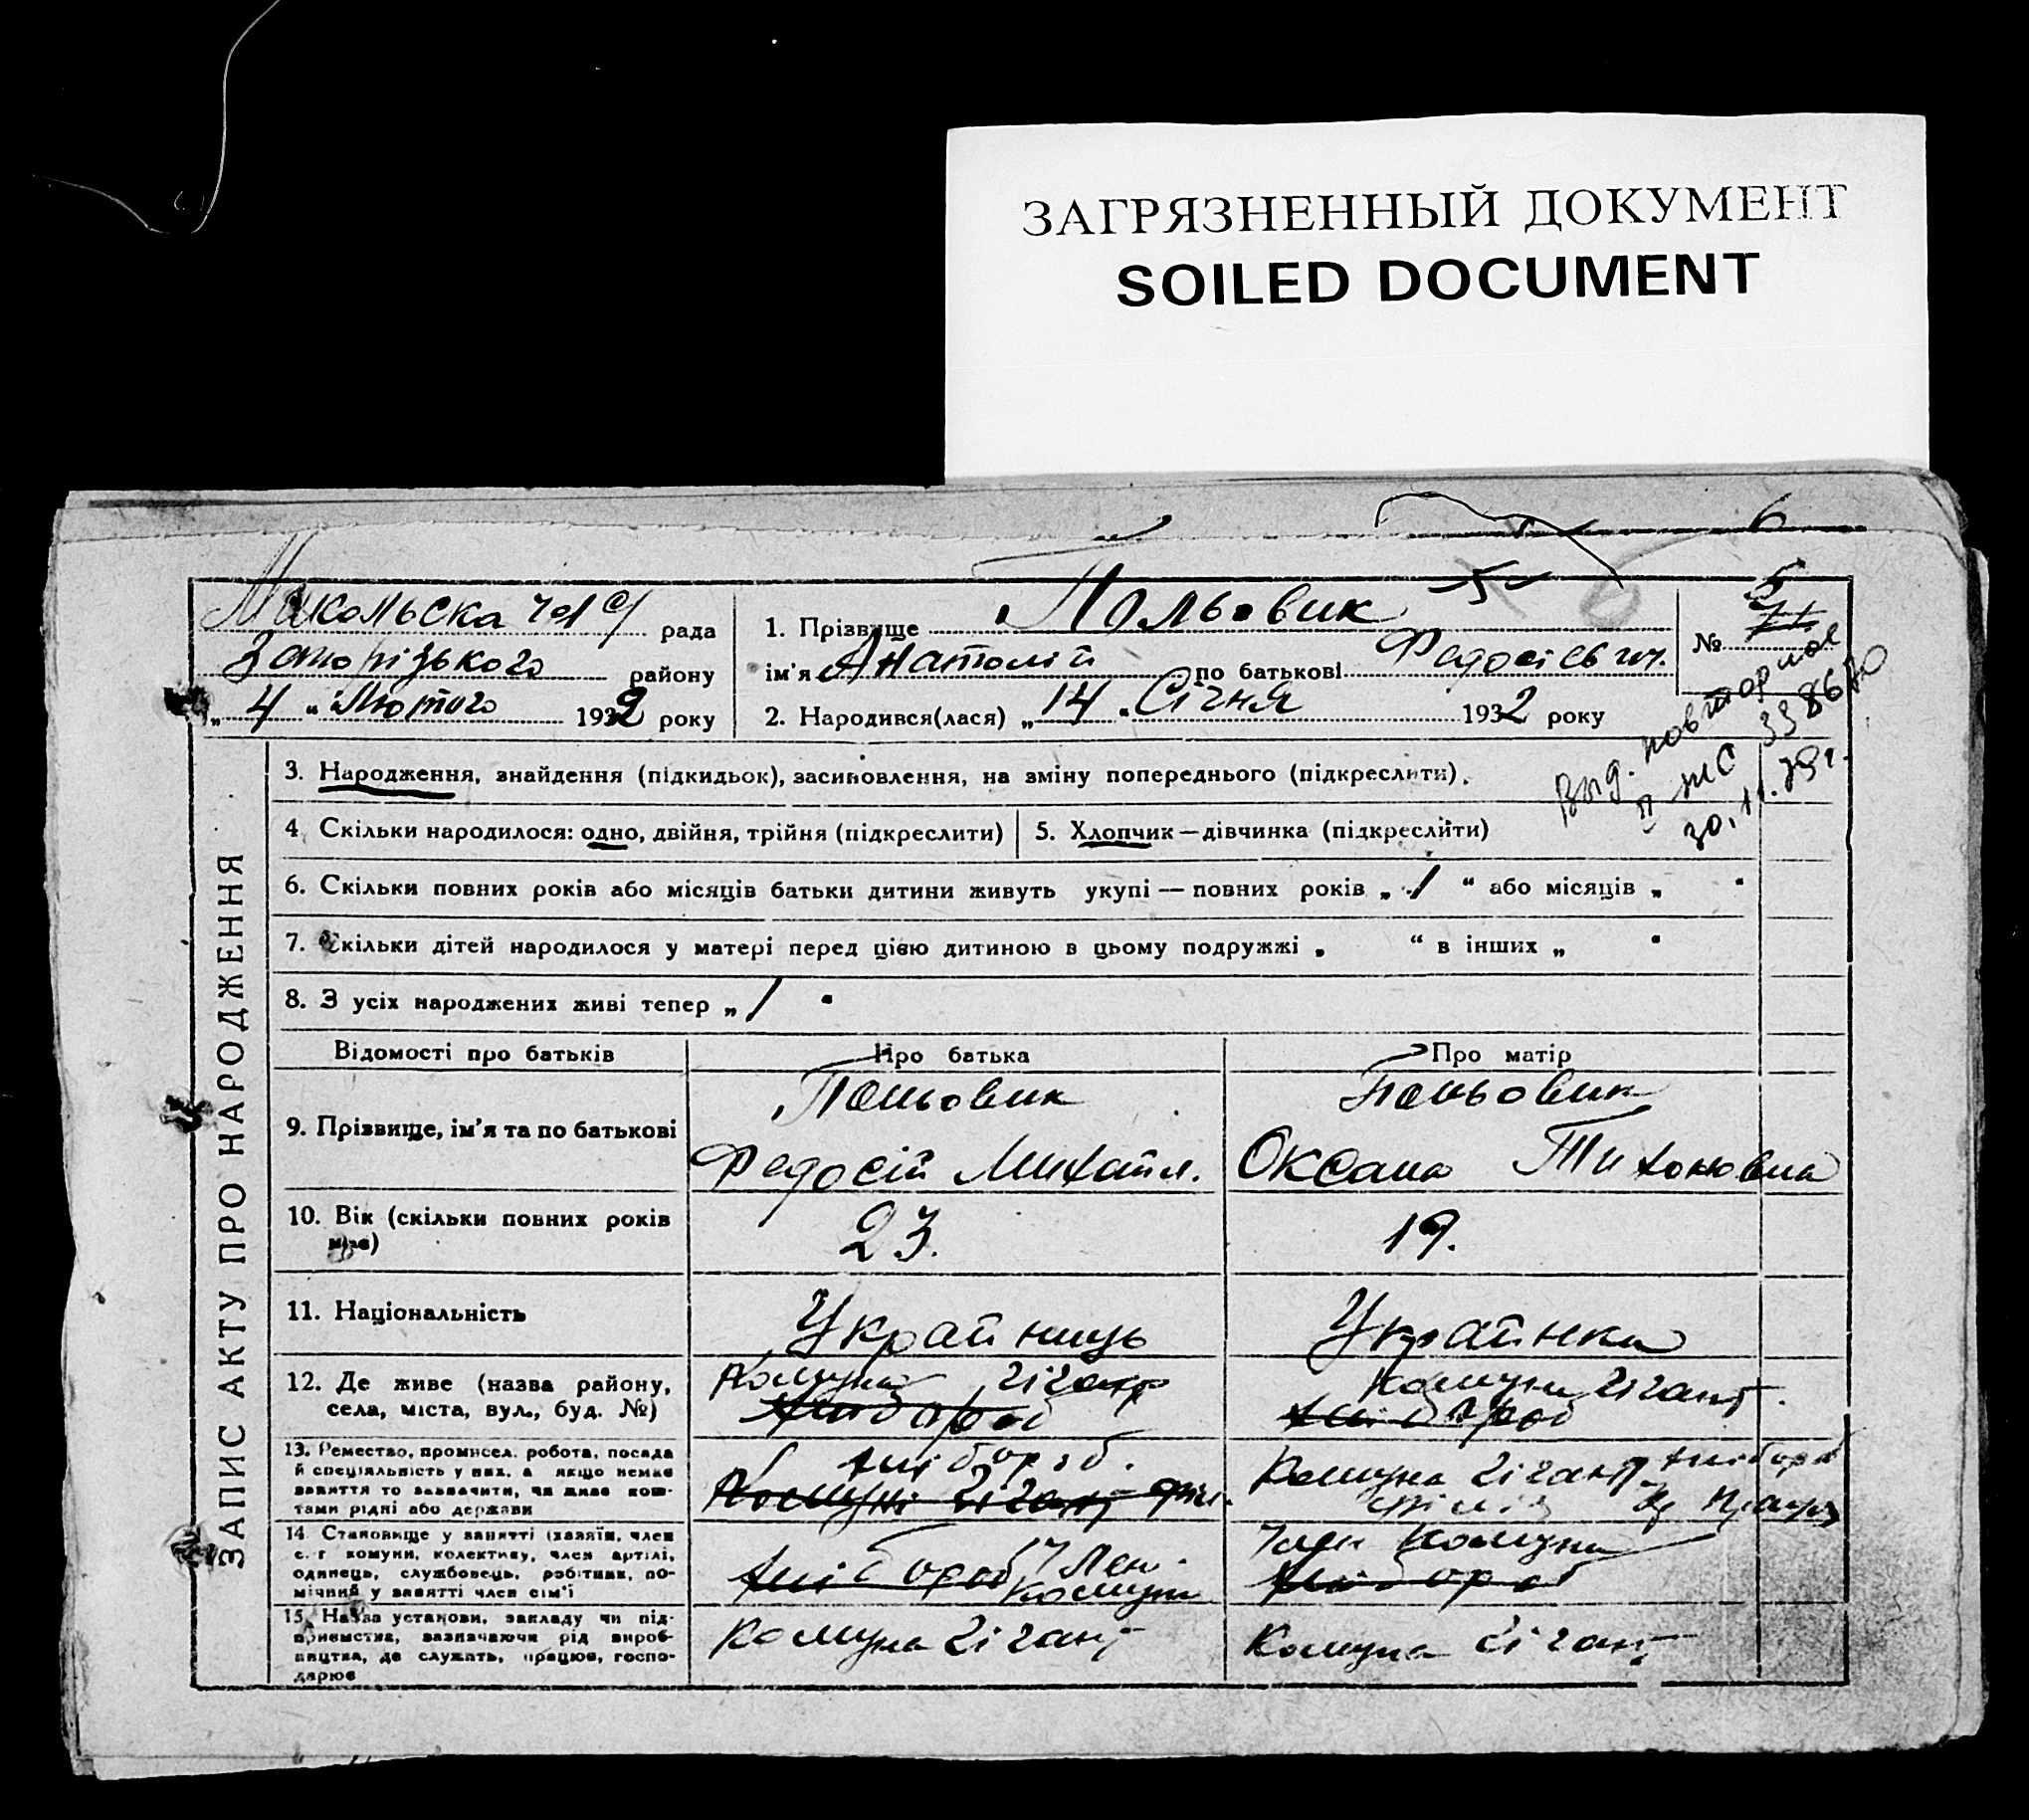 ЗАГРЯЗНЕННЫЙ ДОКУМЕНТ
SOILED DOCUMENT
6
Микольска рада
Запорізького району
„ 4 “ Лютого 1932 року
1. Прізвище Польовик
ім'я Анатолій по батькові Федосієвич.
2. Народився(лася) „ 14 “ Січня 1932 року
№ 5
Выд. повторное
II ЖС 338670
30.11.79г.
ЗАПИС АКТУ ПРО НАРОДЖЕННЯ
3. Народження, знайдення (підкидьок), засиновлення, на зміну попереднього (підкреслити).
4. Скільки народилося: одно, двійня, трійня (підкреслити)
5. Хлопчик—дівчинка (підкреслити)
6. Скільки повних років або місяців батьки дитини живуть укупі — повних років „ 1 “ або місяців „ “
7. Скільки дітей народилося у матері перед цією дитиною в цьому подружжі „ “ в інших „ “
8. З усіх народжених живі тепер „ 1 “
Відомості про батьків
Про батька
Про матір
9. Прізвище, ім'я та по батькові
Польовик
Федосій Михайл.
Польовик
Оксана Тихоновна
10. Вік (скільки повних років має)
23.
19.
11. Національність
Українець
Українка
12. Де живе (назва району,
села, міста, вул., буд. №)
Комуна Гігант
хлібороб
Комуна Гігант.
хлібороб
13. Ремество, промисел, робота, посада
й спеціяльність у них, а якщо немає
заняття то зазначити, чи живе кош-
тами рідні або держави
хлібороб.
Комуні Гігант
Комуна Гігант хлібороб
14. Становище у занятті (хазяїн, член
с.-г комуни, колективу, член артілі,
одинець, службовець, робітник, по-
мічний у занятті член сім'ї
хлібороб Член
комуни
Член комуни
хлібороб
15. Назва установи, закладу чи під-
приємства, зазначаючи рід вироб-
ництва, де служить, працює, госпо-
дарює
Комуна Гігант
Комуна Гігант